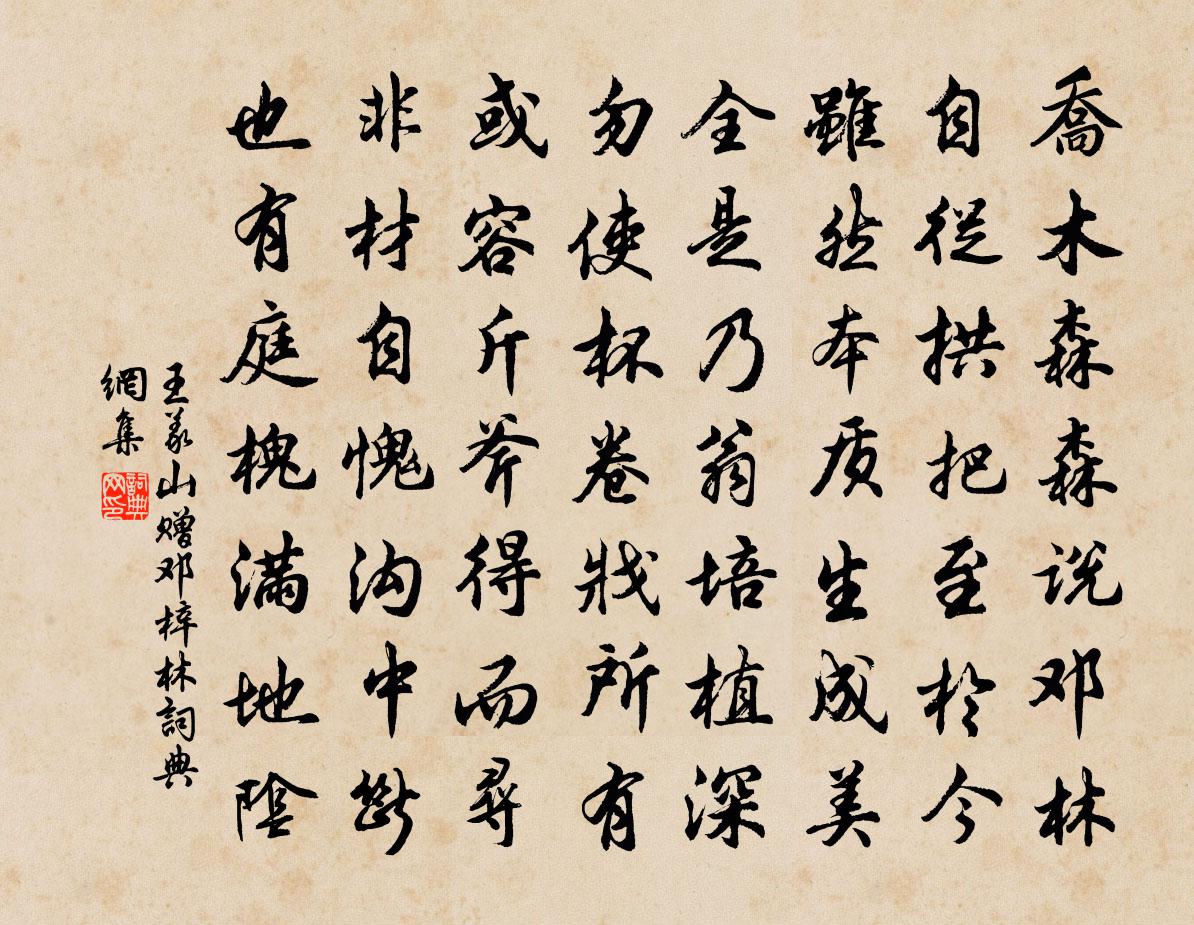 喬木森森说邓林
自從拱把至於今
雖然本质生成美
全是乃翁培植深
勿使杯卷戕所有
或容斤斧得而尋
非材自愧沟中斷
也有庭槐满地陰
王義山赠邓梓林詞典
網集
詞典网印